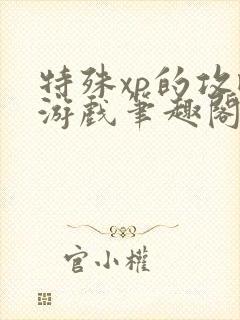 特殊xp的攻
游戏筆趣閣
官小權